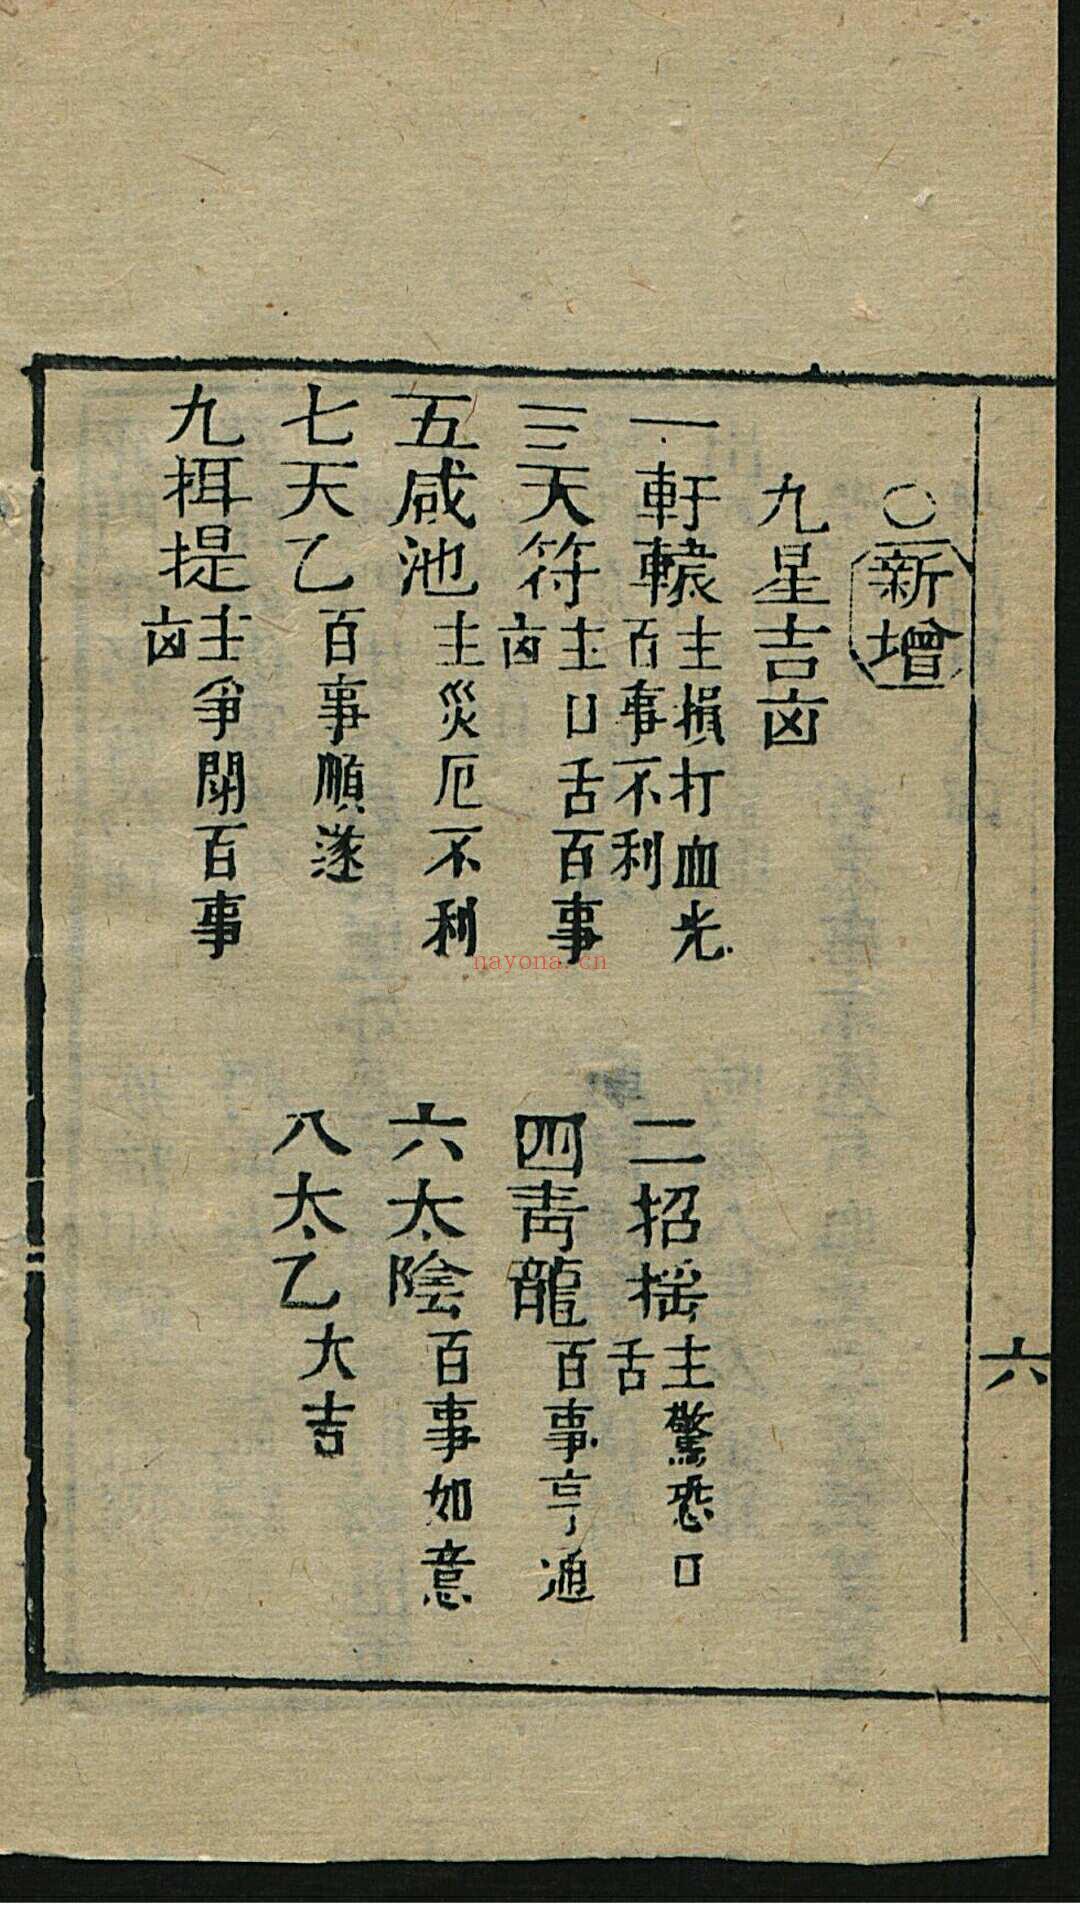 〇新增
九星吉㐫
一軒轅主損打血光百事不利
二招搖主驚恐口舌
三天符主口舌百事㐫
四青龍百事亨通
五咸池主災厄不利
六太陰百事如意
七天乙百事順遂
八太乙大吉
九摂提主爭鬧百事㐫
六
nayona.cn